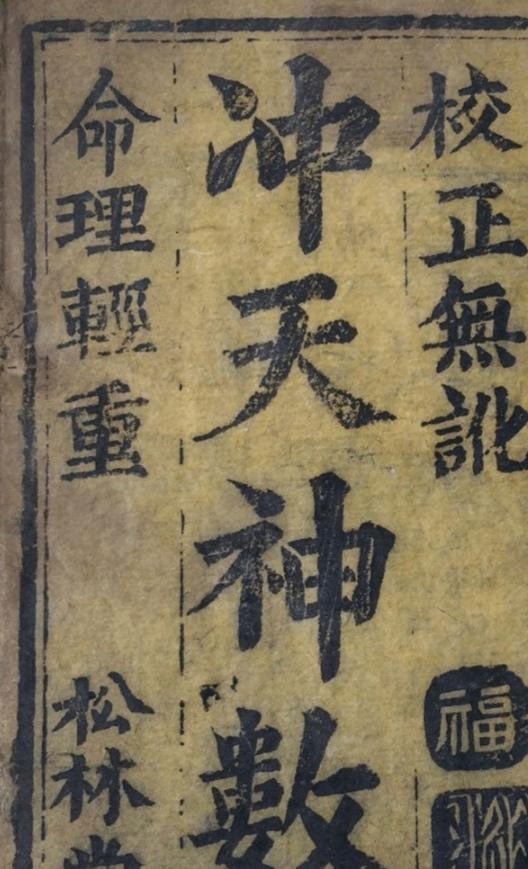 校正無訛
福
冲天神數
命理輕重
松林堂